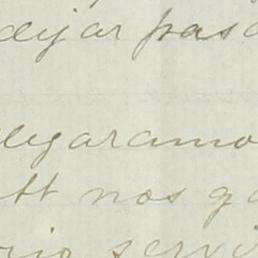 dejar pasa
legaramo
tt nos g
rio servi